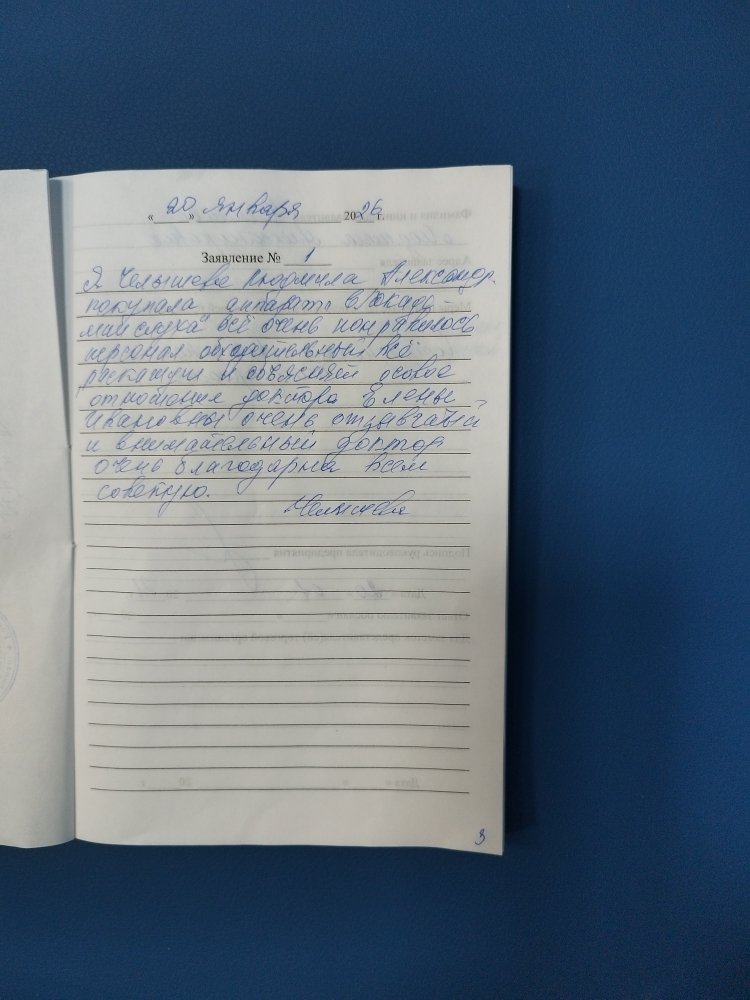 «20» января 2026 г.
Заявление № 1
Я Челышева Людмила Александр.
покупала аппарат в "Окадь
мии слуха" всё очень понравилось
персонал обходительный всё
раскажут и объяснят особое
отношение доктора Елены
Ивановны очень отзывчатый
и внимательный доктор
очень благодарна всем
советую.
Челышева
3